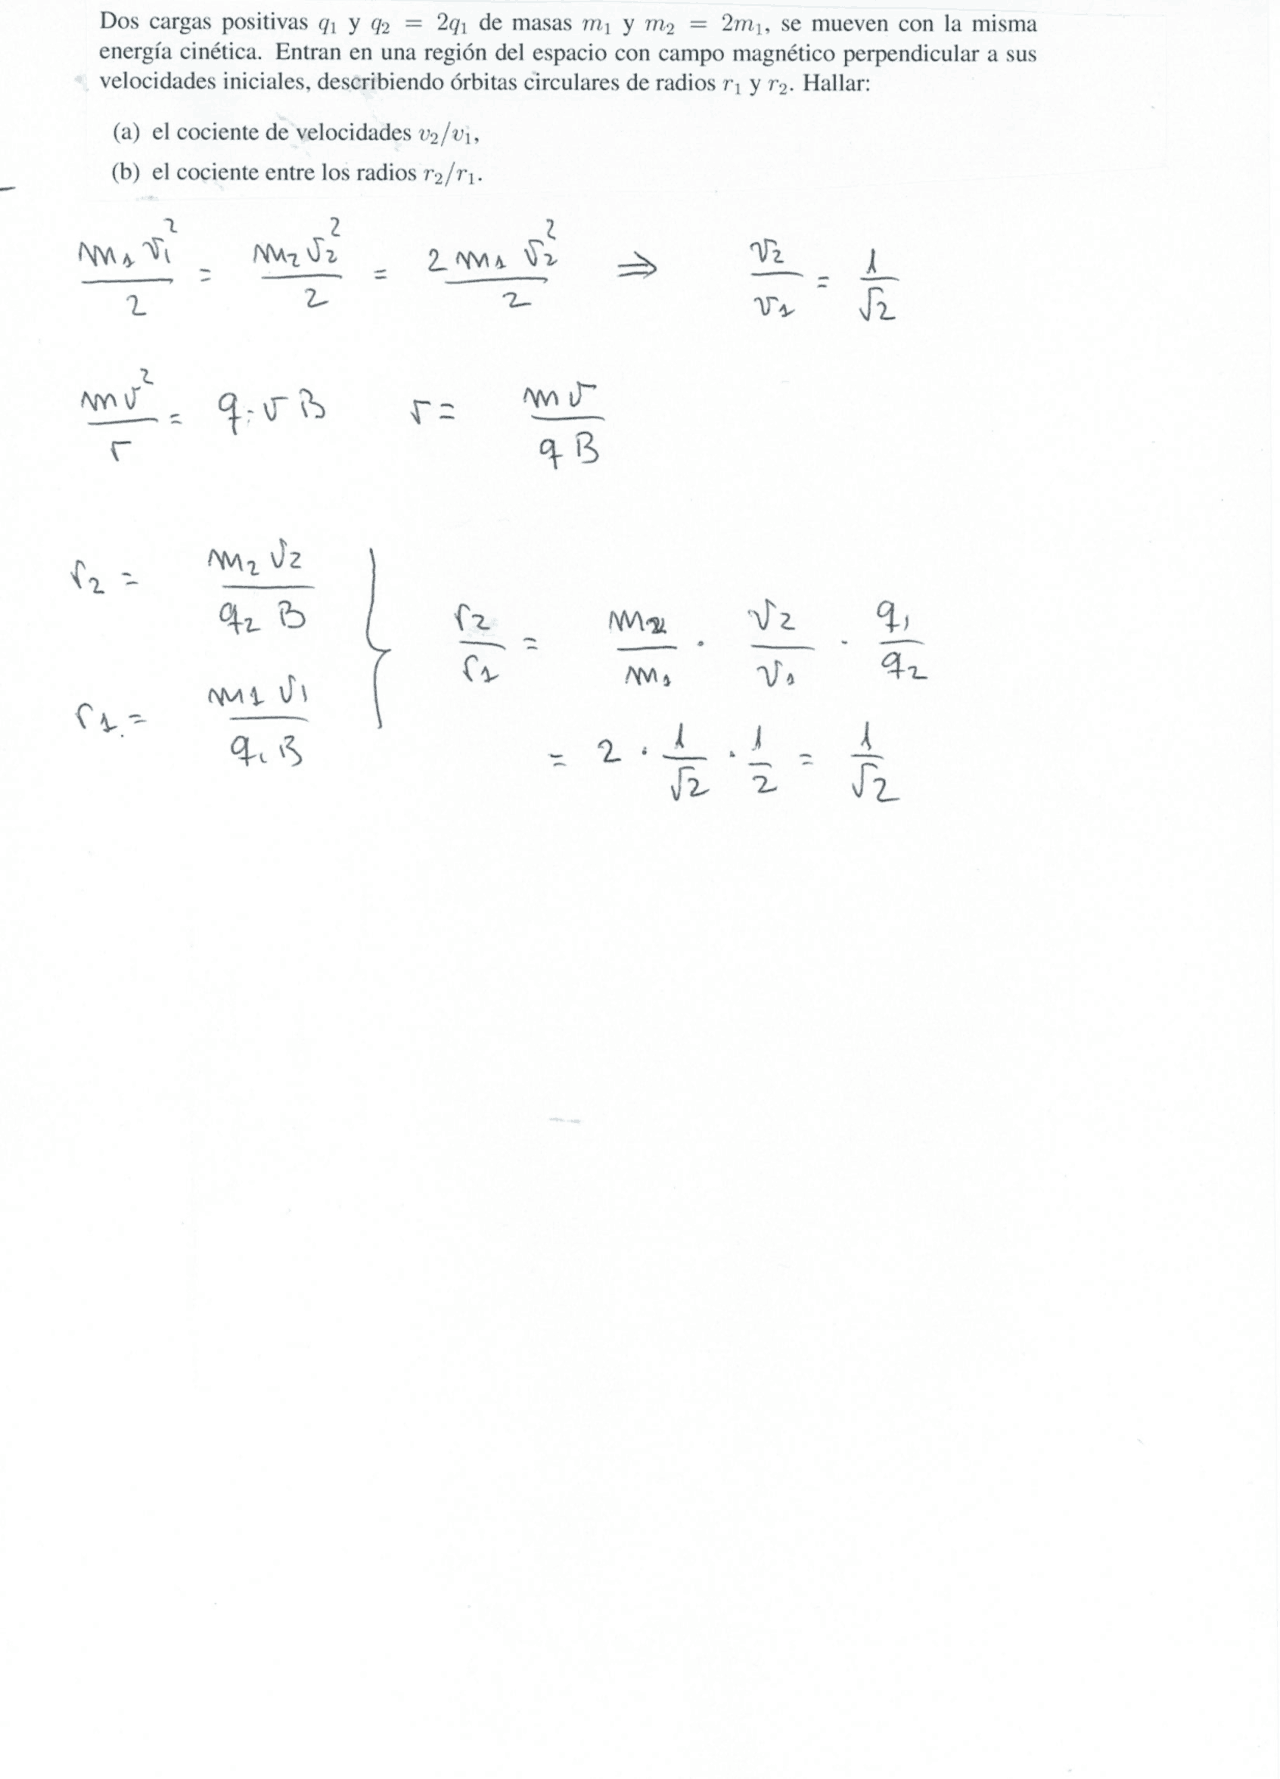 Dos cargas positivas q₁ y q₂ = 2q₁ de masas m₁ y m₂ = 2m₁, se mueven con la misma
energía cinética. Entran en una región del espacio con campo magnético perpendicular a sus
velocidades iniciales, describiendo órbitas circulares de radios r₁ y r₂. Hallar:
(a) el cociente de velocidades v₂/v₁,
(b) el cociente entre los radios r₂/r₁.
m₁ v₁²/2 = m₂ v₂²/2 = 2 m₁ v₂²/2 ⇒ v₂/v₁ = 1/√2
m v²/r = q · v B r = m v/q B
r₂ = m₂ v₂/q₂ B
r₁ = m₁ v₁/q₁ B
} r₂/r₁ = m₂/m₁ · v₂/v₁ · q₁/q₂
= 2 · 1/√2 · 1/2 = 1/√2